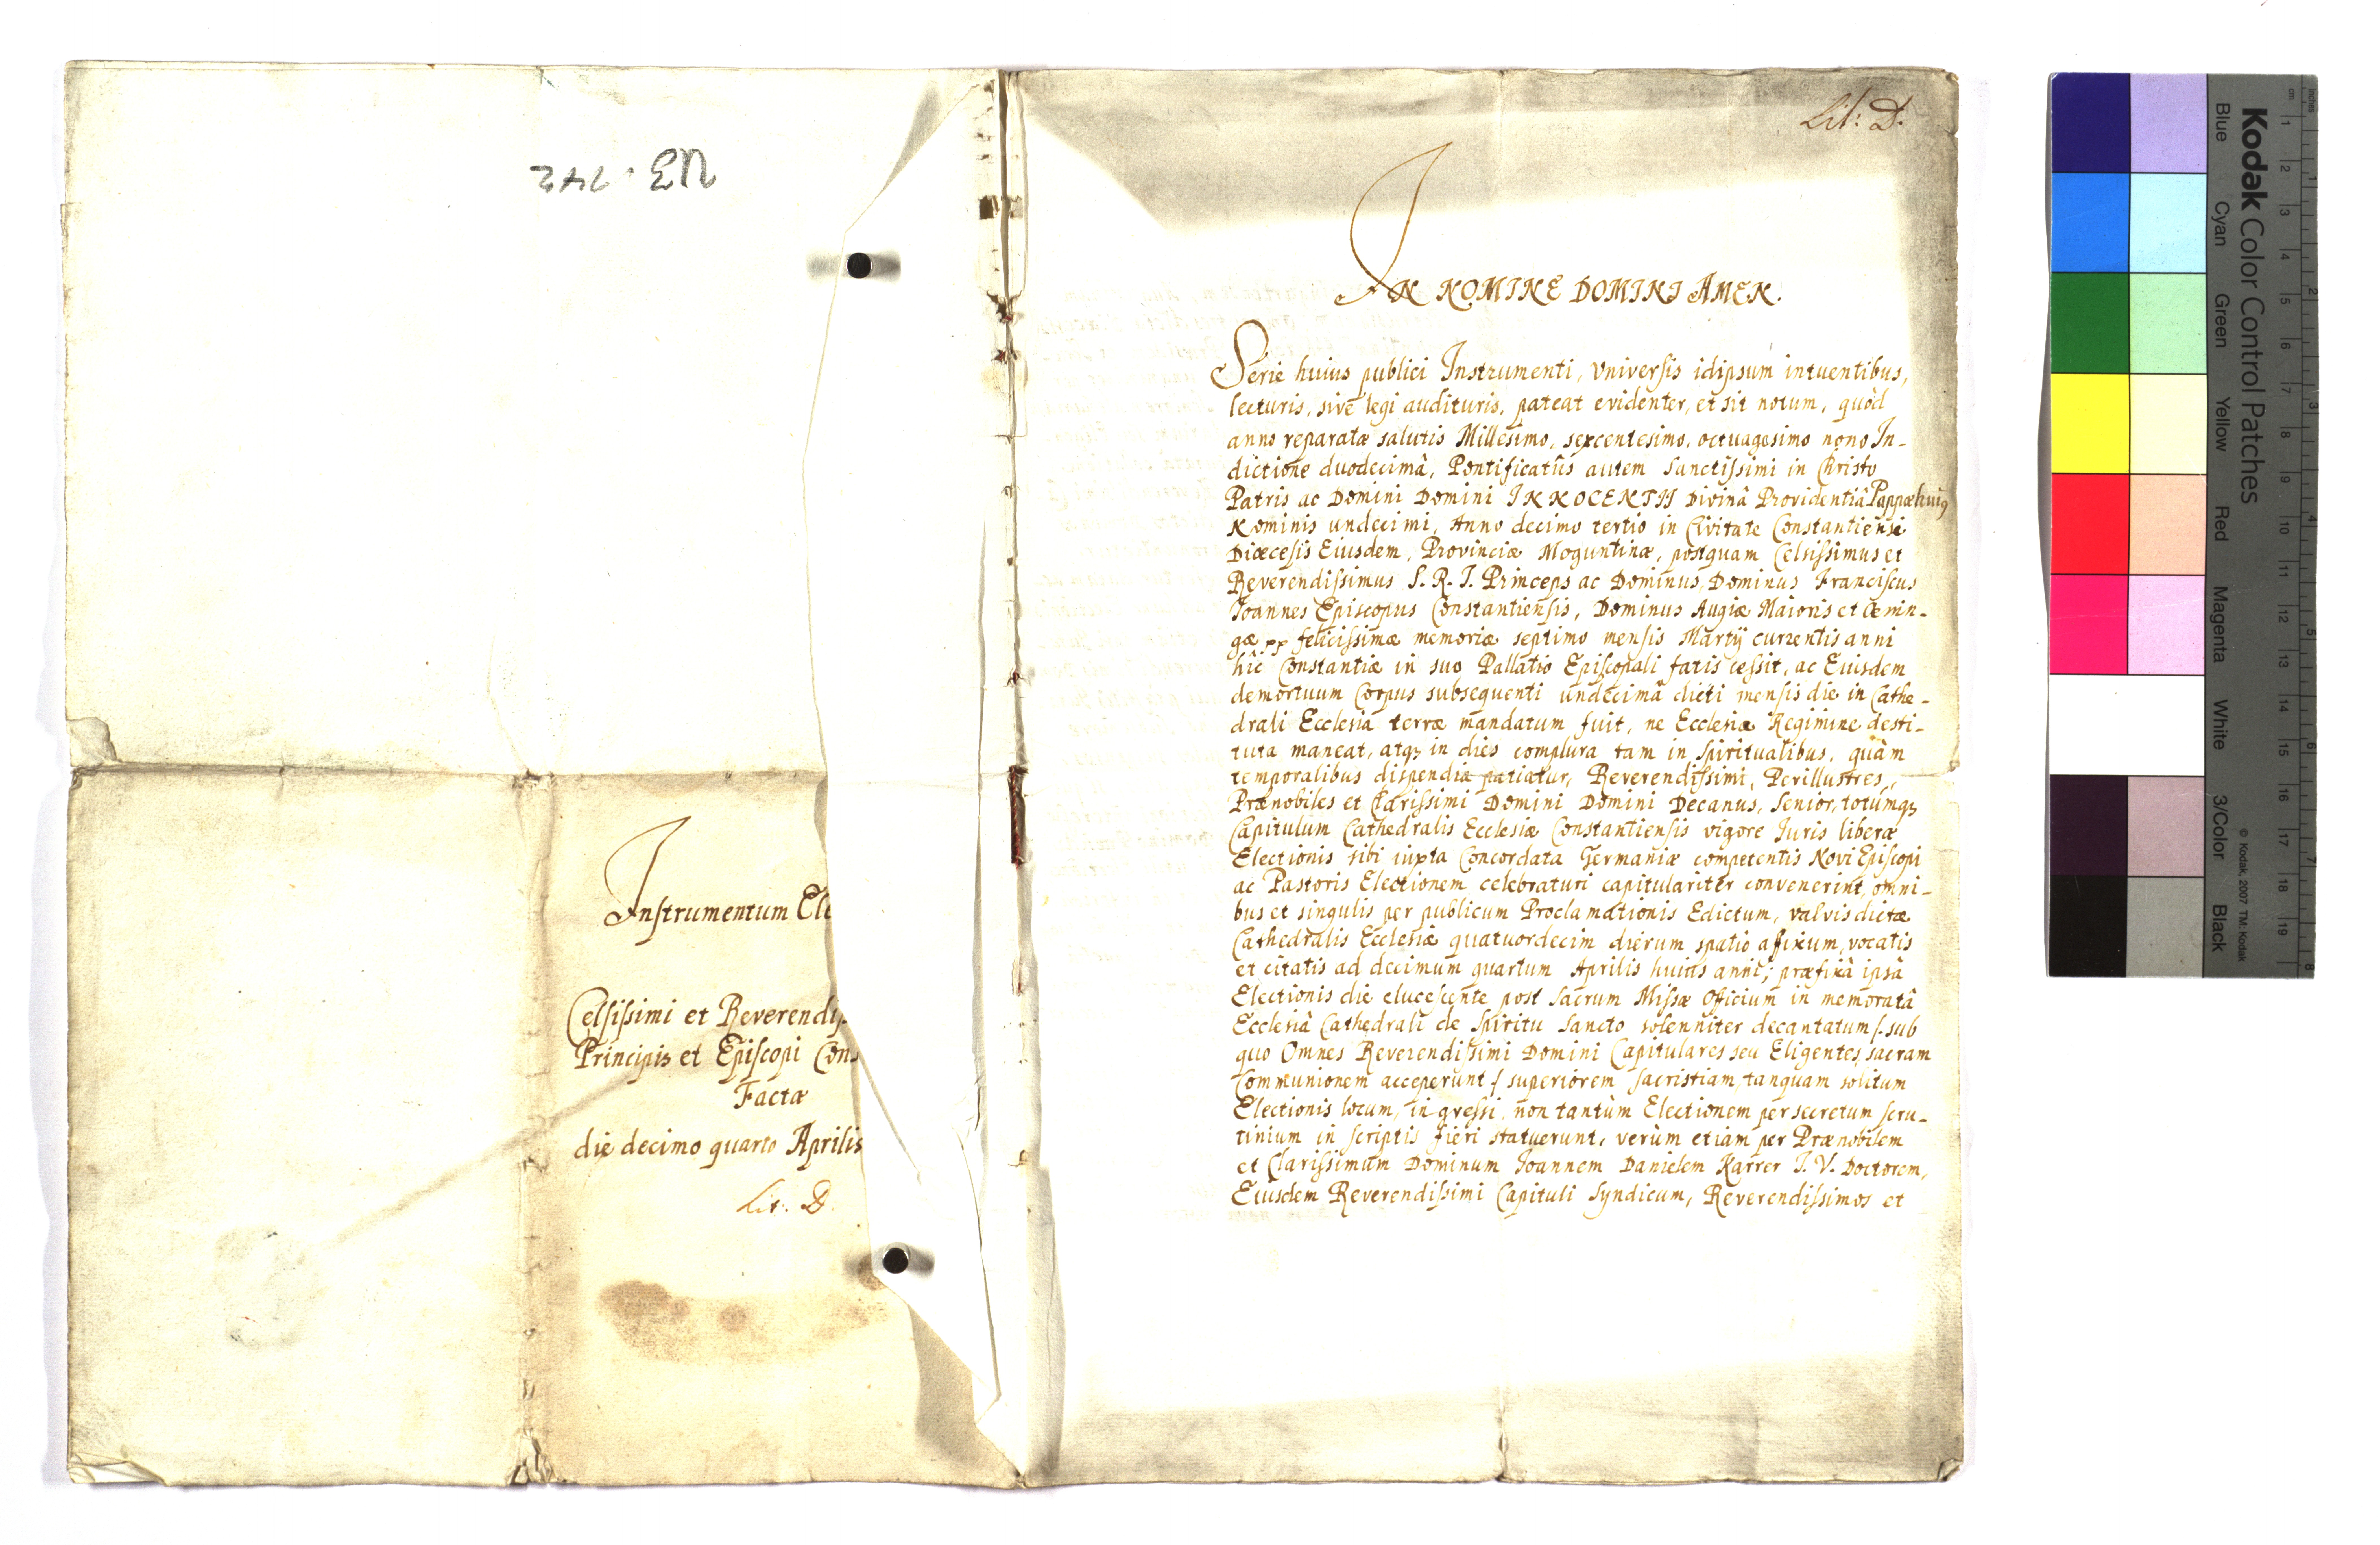 U3 . 742
Instrumentum Ele
Celsissimi et Reverendis
Principis et Episcopi Cons
Factæ
die decimo quarto Aprilis
Lit: D.
Lit: D.
IN NOMINE DOMINI AMEN.
Serie huius publici Instrumenti, Vniversis idipsum intuentibus,
lecturis, sive legi audituris, pateat evidenter, et sit notum, quòd
anno reparatæ salutis Millesimo, sexcentesimo, octuagesimo nono In-
dictione duodecimâ, Pontificatûs autem Sanctissimi in Christo
Patris ac Domini Domini INNOCENTII Divinâ Providentiâ Pappæ huiꝰ
Nominis undecimi, Anno decimo tertio in Civitate Constantiensi
Diœcesis Eiusdem, Provinciæ Moguntinæ, postquam Celsissimus et
Reverendissimus S. R. I. Princeps ac Dominus, Dominus Franciscus
Joannes Episcopus Constantiensis, Dominus Augiæ Maioris et Oenin-
gæ pp felicissimæ memoriæ septimo mensis Martÿ currentis anni
hîc Constantiæ in suo Pallatio Episcopali fatis cessit, ac Eiusdem
demortuum Corpus subsequenti undecimâ dicti mensis die in Cathe-
drali Ecclesiâ terræ mandatum fuit, ne Ecclesia Regimine desti-
tuta maneat, atqꝫ in dies complura tam in Spiritualibus, quàm
temporalibus dispendia patiatur, Reverendissimi, Perillustres,
Prænobiles et Clarissimi Domini Domini Decanus, Senior, totumqꝫ
Capitulum Cathedralis Ecclesiæ Constantiensis vigore Iuris liberæ
Electionis sibi iuxta Concordata Germaniæ competentis Novi Episcopi
ac Pastoris Electionem celebraturi capitulariter convenerint, omni-
bus et singulis per publicum Proclamationis Edictum, valvis dictæ
Cathedralis Ecclesiæ quatuordecim dierum spatio affixum, vocatis
et citatis ad decimum quartum Aprilis huius anni; præfixâ ipsâ
Electionis die elucescente post Sacrum Missæ Officium in memoratâ
Ecclesiâ Cathedrali de Spiritu Sancto solenniter decantatum /: sub
quo Omnes Reverendissimi Domini Capitulares seu Eligentes, sacram
Communionem acceperunt / superiorem Sacristiam, tanquam solitum
Electionis locum, ingressi, non tantùm Electionem per secretum scru-
tinium in scriptis fieri statuerunt, verùm etiam per Prænobilem
et Clarissimum Dominum Joannem Danielem Karrer I. V. Doctorem,
Eiusdem Reverendissimi Capituli Syndicum, Reverendissimos et
Kodak Color Control Patches
© Kodak, 2007 TM: Kodak
Blue Cyan Green Yellow Red Magenta White 3/Color Black
inches 1 2 3 4 5 6 7 8
cm 1 2 3 4 5 6 7 8 9 10 11 12 13 14 15 16 17 18 19